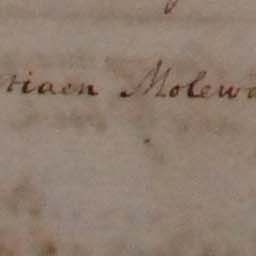 tiaen Molewa